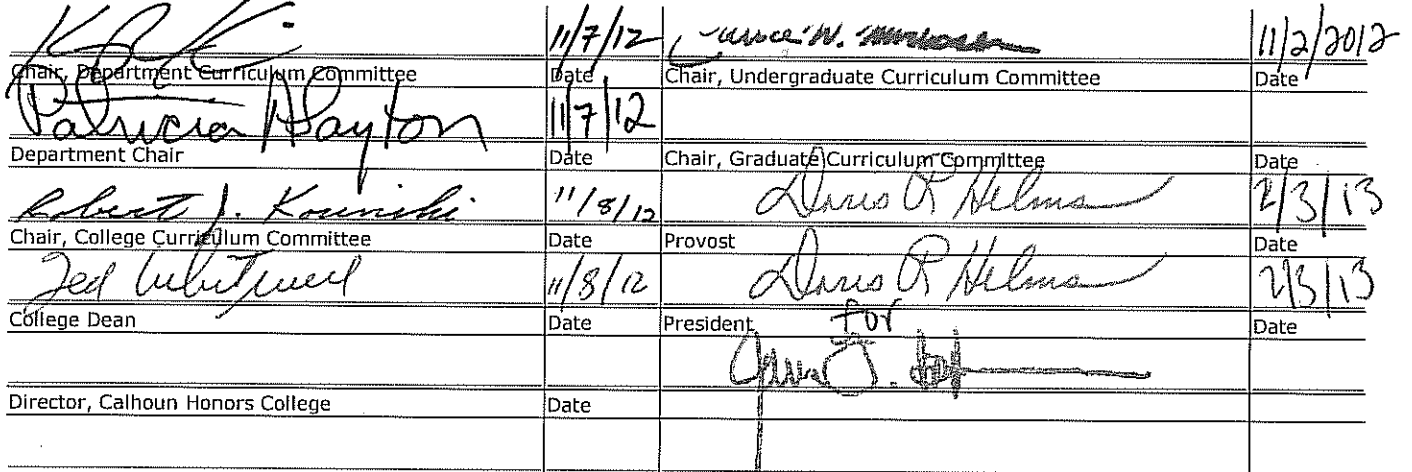 11/7/12 11/2/2012
Chair, Department Curriculum Committee Date Chair, Undergraduate Curriculum Committee Date
Patricia Layton 11/7/12
Department Chair Date Chair, Graduate Curriculum Committee Date
Robert J. 11/8/12 Doris R Helms 2/3/13
Chair, College Curriculum Committee Date Provost Date
Ted Whitwell 11/8/12 Doris R Helms 2/3/13
College Dean Date President for Date
Director, Calhoun Honors College Date